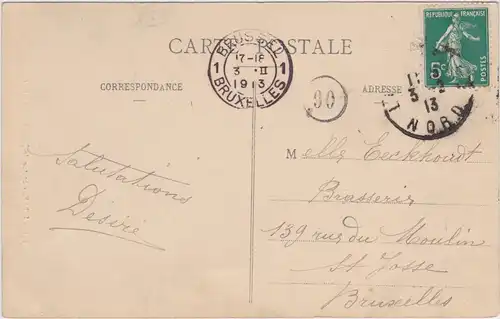 CARTE POSTALE
BRUSSEL
1 17-18 1
3 II
1913
BRUXELLES
REPUBLIQUE FRANÇAISE
5c
POSTES
3
13
NORD
CORRESPONDANCE
ADRESSE
30
Salutations
Desiré
Melle Eeckhoudt
Brasserie
139 rue du Moulin
St Josse
Bruxelles